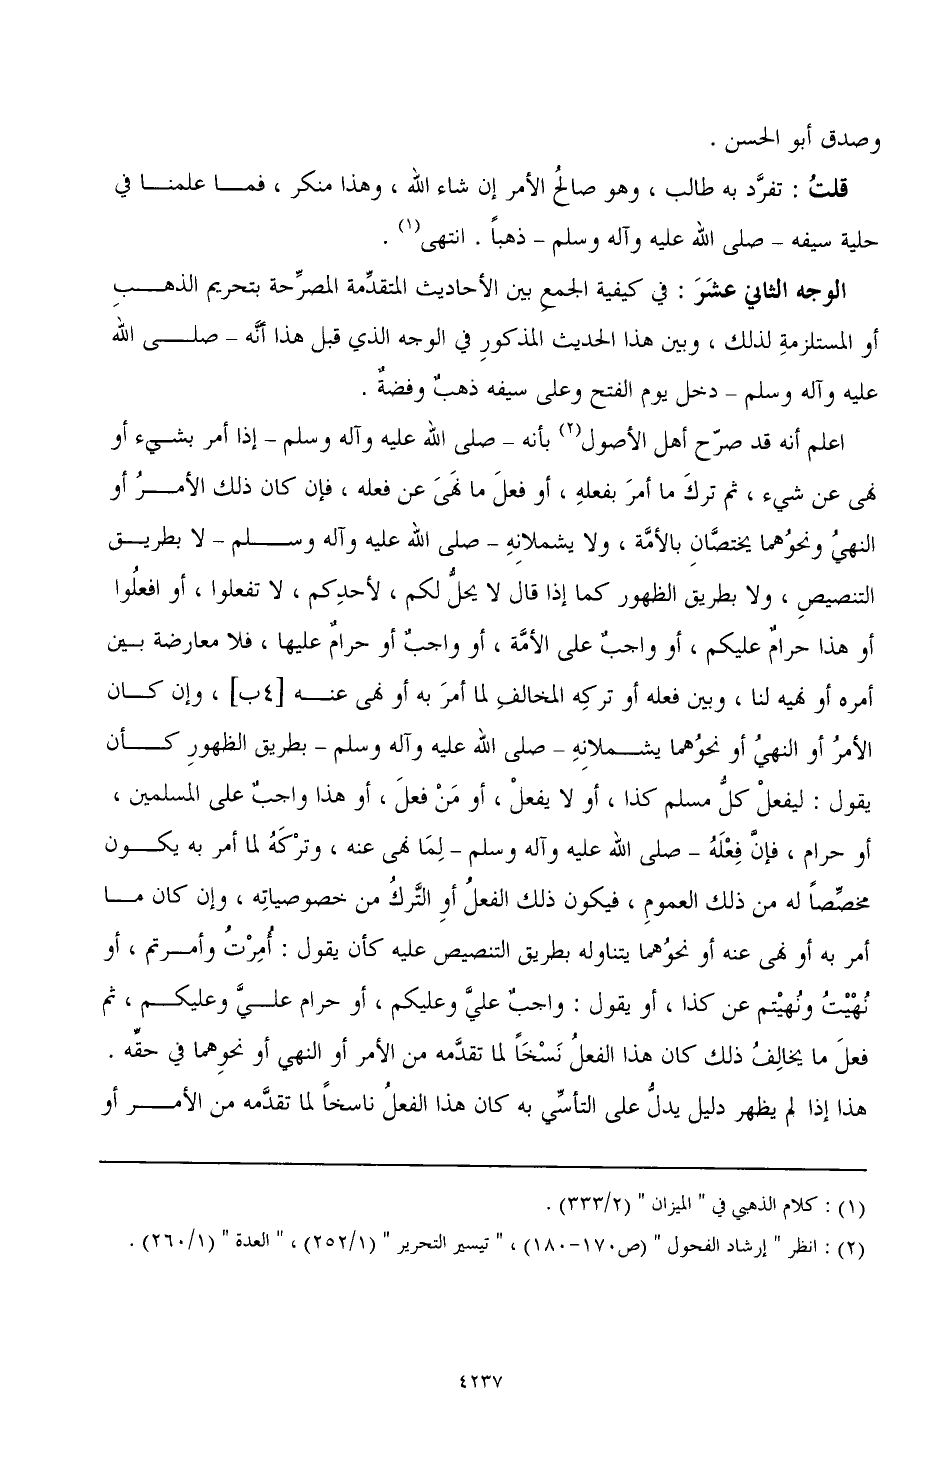 وصدق أبو الحسن .
قلتُ : تفرَّد به طالب ، وهو صالحُ الأمر إن شاء الله ، وهذا منكر ، فما علمنا في
حلية سيفه – صلى الله عليه وآله وسلم – ذهباً . انتهى(١) .
الوجه الثاني عشَرَ : في كيفية الجمعِ بين الأحاديث المتقدِّمة المصرِّحة بتحريم الذهبِ
أو المستلزمةِ لذلك ، وبين هذا الحديث المذكورِ في الوجه الذي قبل هذا أنَّه – صلى الله
عليه وآله وسلم – دخل يوم الفتح وعلى سيفه ذهبٌ وفضةٌ .
اعلم أنه قد صرّح أهل الأصول(٢) بأنه – صلى الله عليه وآله وسلم – إذا أمر بشيء أو
نهى عن شيء ، ثم تركَ ما أمرَ بفعلهِ ، أو فعلَ ما نَهَىَ عن فعله ، فإن كان ذلك الأمرُ أو
النهيُ ونحوُهما يختصَّانِ بالأمَّة ، ولا يشملانِهِ – صلى الله عليه وآله وسلم – لا بطريق
التنصيصِ ، ولا بطريق الظهور كما إذا قال لا يحلُّ لكم ، لأحدِكم ، لا تفعلوا ، أو افعلُوا
أو هذا حرامٌ عليكم ، أو واجبٌ على الأمَّة ، أو واجبٌ أو حرامٌ عليها ، فلا معارضة بين
أمره أو نهيه لنا ، وبين فعله أو تركِه المخالفِ لما أمرَ به أو نهى عنه [٤ب] ، وإن كان
الأمرُ أو النهيُ أو نحوُهما يشملانِهِ – صلى الله عليه وآله وسلم – بطريق الظهورِ كأن
يقول : ليفعلْ كلُّ مسلم كذا ، أو لا يفعلْ ، أو مَنْ فعلَ ، أو هذا واجبٌ على المسلمين ،
أو حرام ، فإنَّ فِعْلَهُ – صلى الله عليه وآله وسلم – لِمَا نهى عنه ، وتركَهُ لما أمر به يكون
مخصِّصاً له من ذلك العمومِ ، فيكون ذلك الفعلُ أوِ التَّركُ من خصوصياتِه ، وإن كان ما
أمر به أو نهى عنه أو نحوُهما يتناوله بطريق التنصيص عليه كأن يقول : أُمِرْتُ وأمرتم ، أو
نُهْيْتُ ونُهيْتم عن كذا ، أو يقول : واجبٌ عليَّ وعليكم ، أو حرام عليَّ وعليكم ، ثم
فعلَ ما يخالِفُ ذلك كان هذا الفعلُ نَسْخَاً لما تقدَّمه من الأمر أو النهي أو نحوِهما في حقِّه .
هذا إذا لم يظهر دليل يدلُّ على التأسِّي به كان هذا الفعلُ ناسخاً لما تقدَّمه من الأمر أو
(١) : كلام الذهبي في " الميزان " (٣٣٣/٢) .
(٢) : انظر " إرشاد الفحول " (ص١٧٠-١٨٠) ، " تيسير التحرير " (٢٥٢/١) ، " العدة " (٢٦٠/١) .
٤٢٣٧